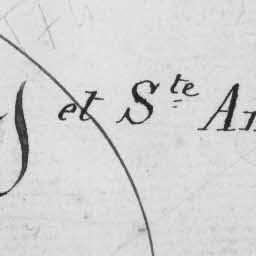 et Ste An